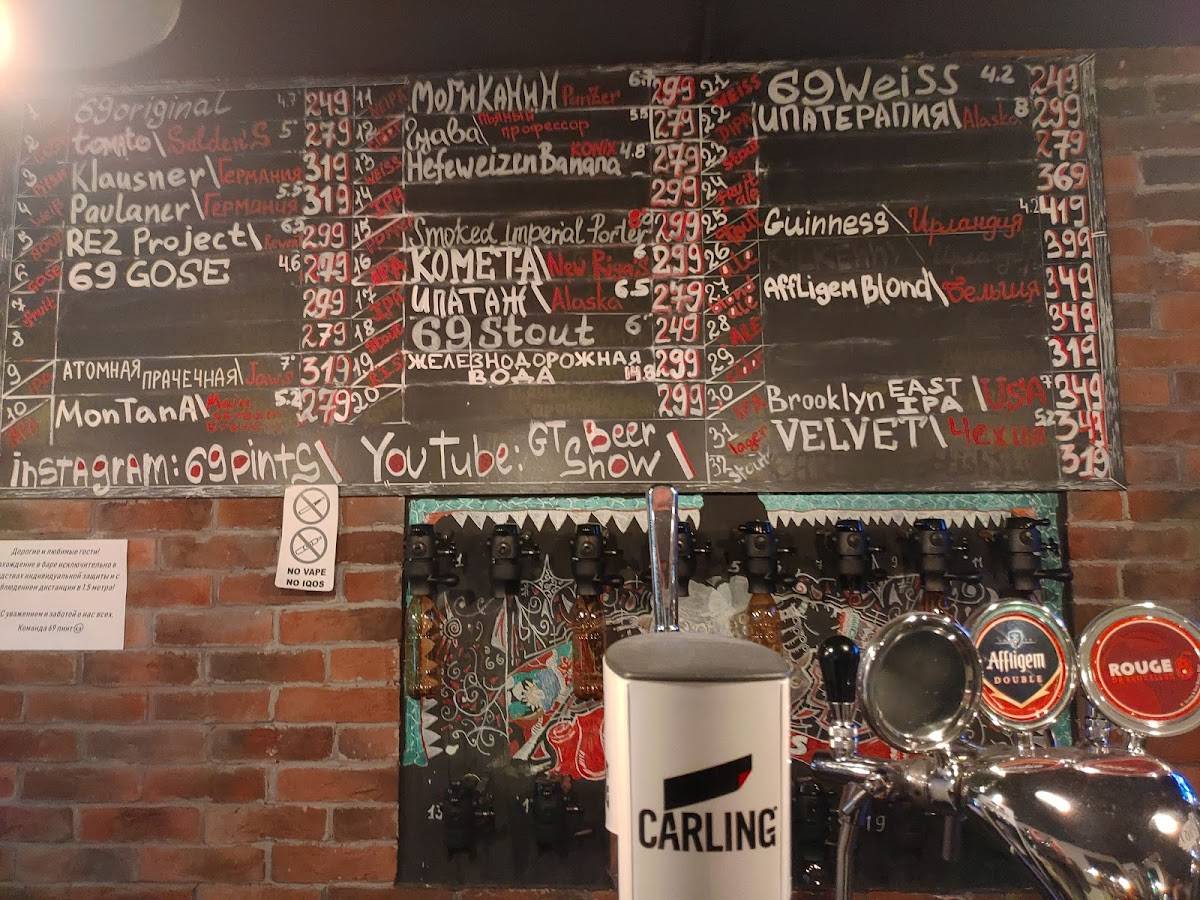 1 69 original 4,7 249
2 tomato\ Salden'S 5 279
3 Klausner\ Германия 319
4 Paulaner\ Германия 5.5 319
5 RE2 Project\ 6.5 299
6 GOSE 69 GOSE 4.6 279
7 fruit 299
8 279
9 АТОМНАЯ ПРАЧЕЧНАЯ\ Jaws 7 319
10 MonTanA\ 5.2 279
11 МОГИКАНИН Panzer 6.7 299
12 Гуава\ Пьяный профессор 5.5 279
13 WEISS HefeweizenBanana KONIX 4.8 279
14 IPA 299
15 Smoked Imperial Porter 299
16 КОМЕТА\ New Riga'S 6 299
17 ИПАТАЖ\ Alaska 6.5 279
18 69 Stout 6 249
19 ЖЕЛЕЗНОДОРОЖНАЯ ВОДА 14.8 299
20 299
21 WEISS 69 WeiSS 4.2 249
22 DIPA ИПАТЕРАПИЯ\ Alaska 8 299
23 279
24 fruit ale 369
25 Guinness\ Ирландия 4.2 419
26 399
27 AFFLigem Blond\ Бельгия 349
28 ALE 349
29 319
30 IPA Brooklyn EAST IPA\ USA 7 349
31 lager VELVET\ Чехия 5.2 349
32 stout 319
instagram: 69pints\ YouTube: GT Beer Show\
NO VAPE
NO IQOS
Дорогие и любимые гости!
нахождение в баре исключительно в
средствах индивидуальной защиты и с
соблюдением дистанции в 1.5 метра!
С уважением и заботой о нас всех.
Команда 69 пинт
5
9
13
19
CARLING
Affligem
DOUBLE
ROUGE